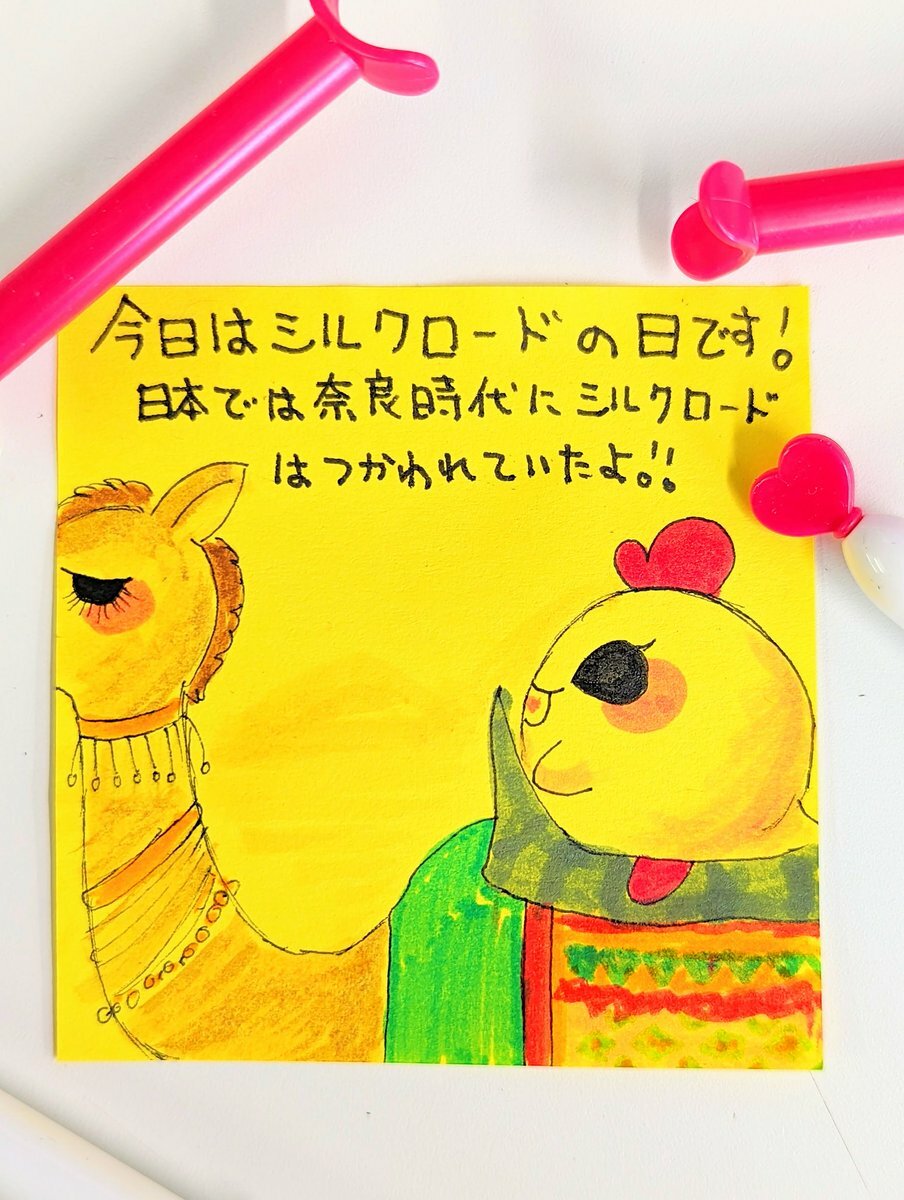 今日はシルクロードの日です!
日本では奈良時代にシルクロード
はつかわれていたよ!!